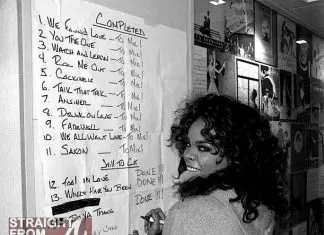 COMPLETED
1. WE FOUND LOVE — TO MIX!
2. YOU DA ONE — TO MIX!
3. WATCH AND LEARN — TO MIX!
4. ROC ME OUT — TO MIX!
5. COCKINESS — TO MIX!
6. TALK THAT TALK — TO MIX!
7. ANSWER — TO MIX!
8. DRUNK ON LOVE — TO MIX!
9. FAREWELL — TO MIX!
10. WE ALL WANT LOVE — TO MIX!
11. SAXON — TO MIX!
STILL TO CUT
12. FOOL IN LOVE DONE
13. WHERE HAVE YOU BEEN DONE
DONE
DA YA THANG
STRAIGHT
FROM